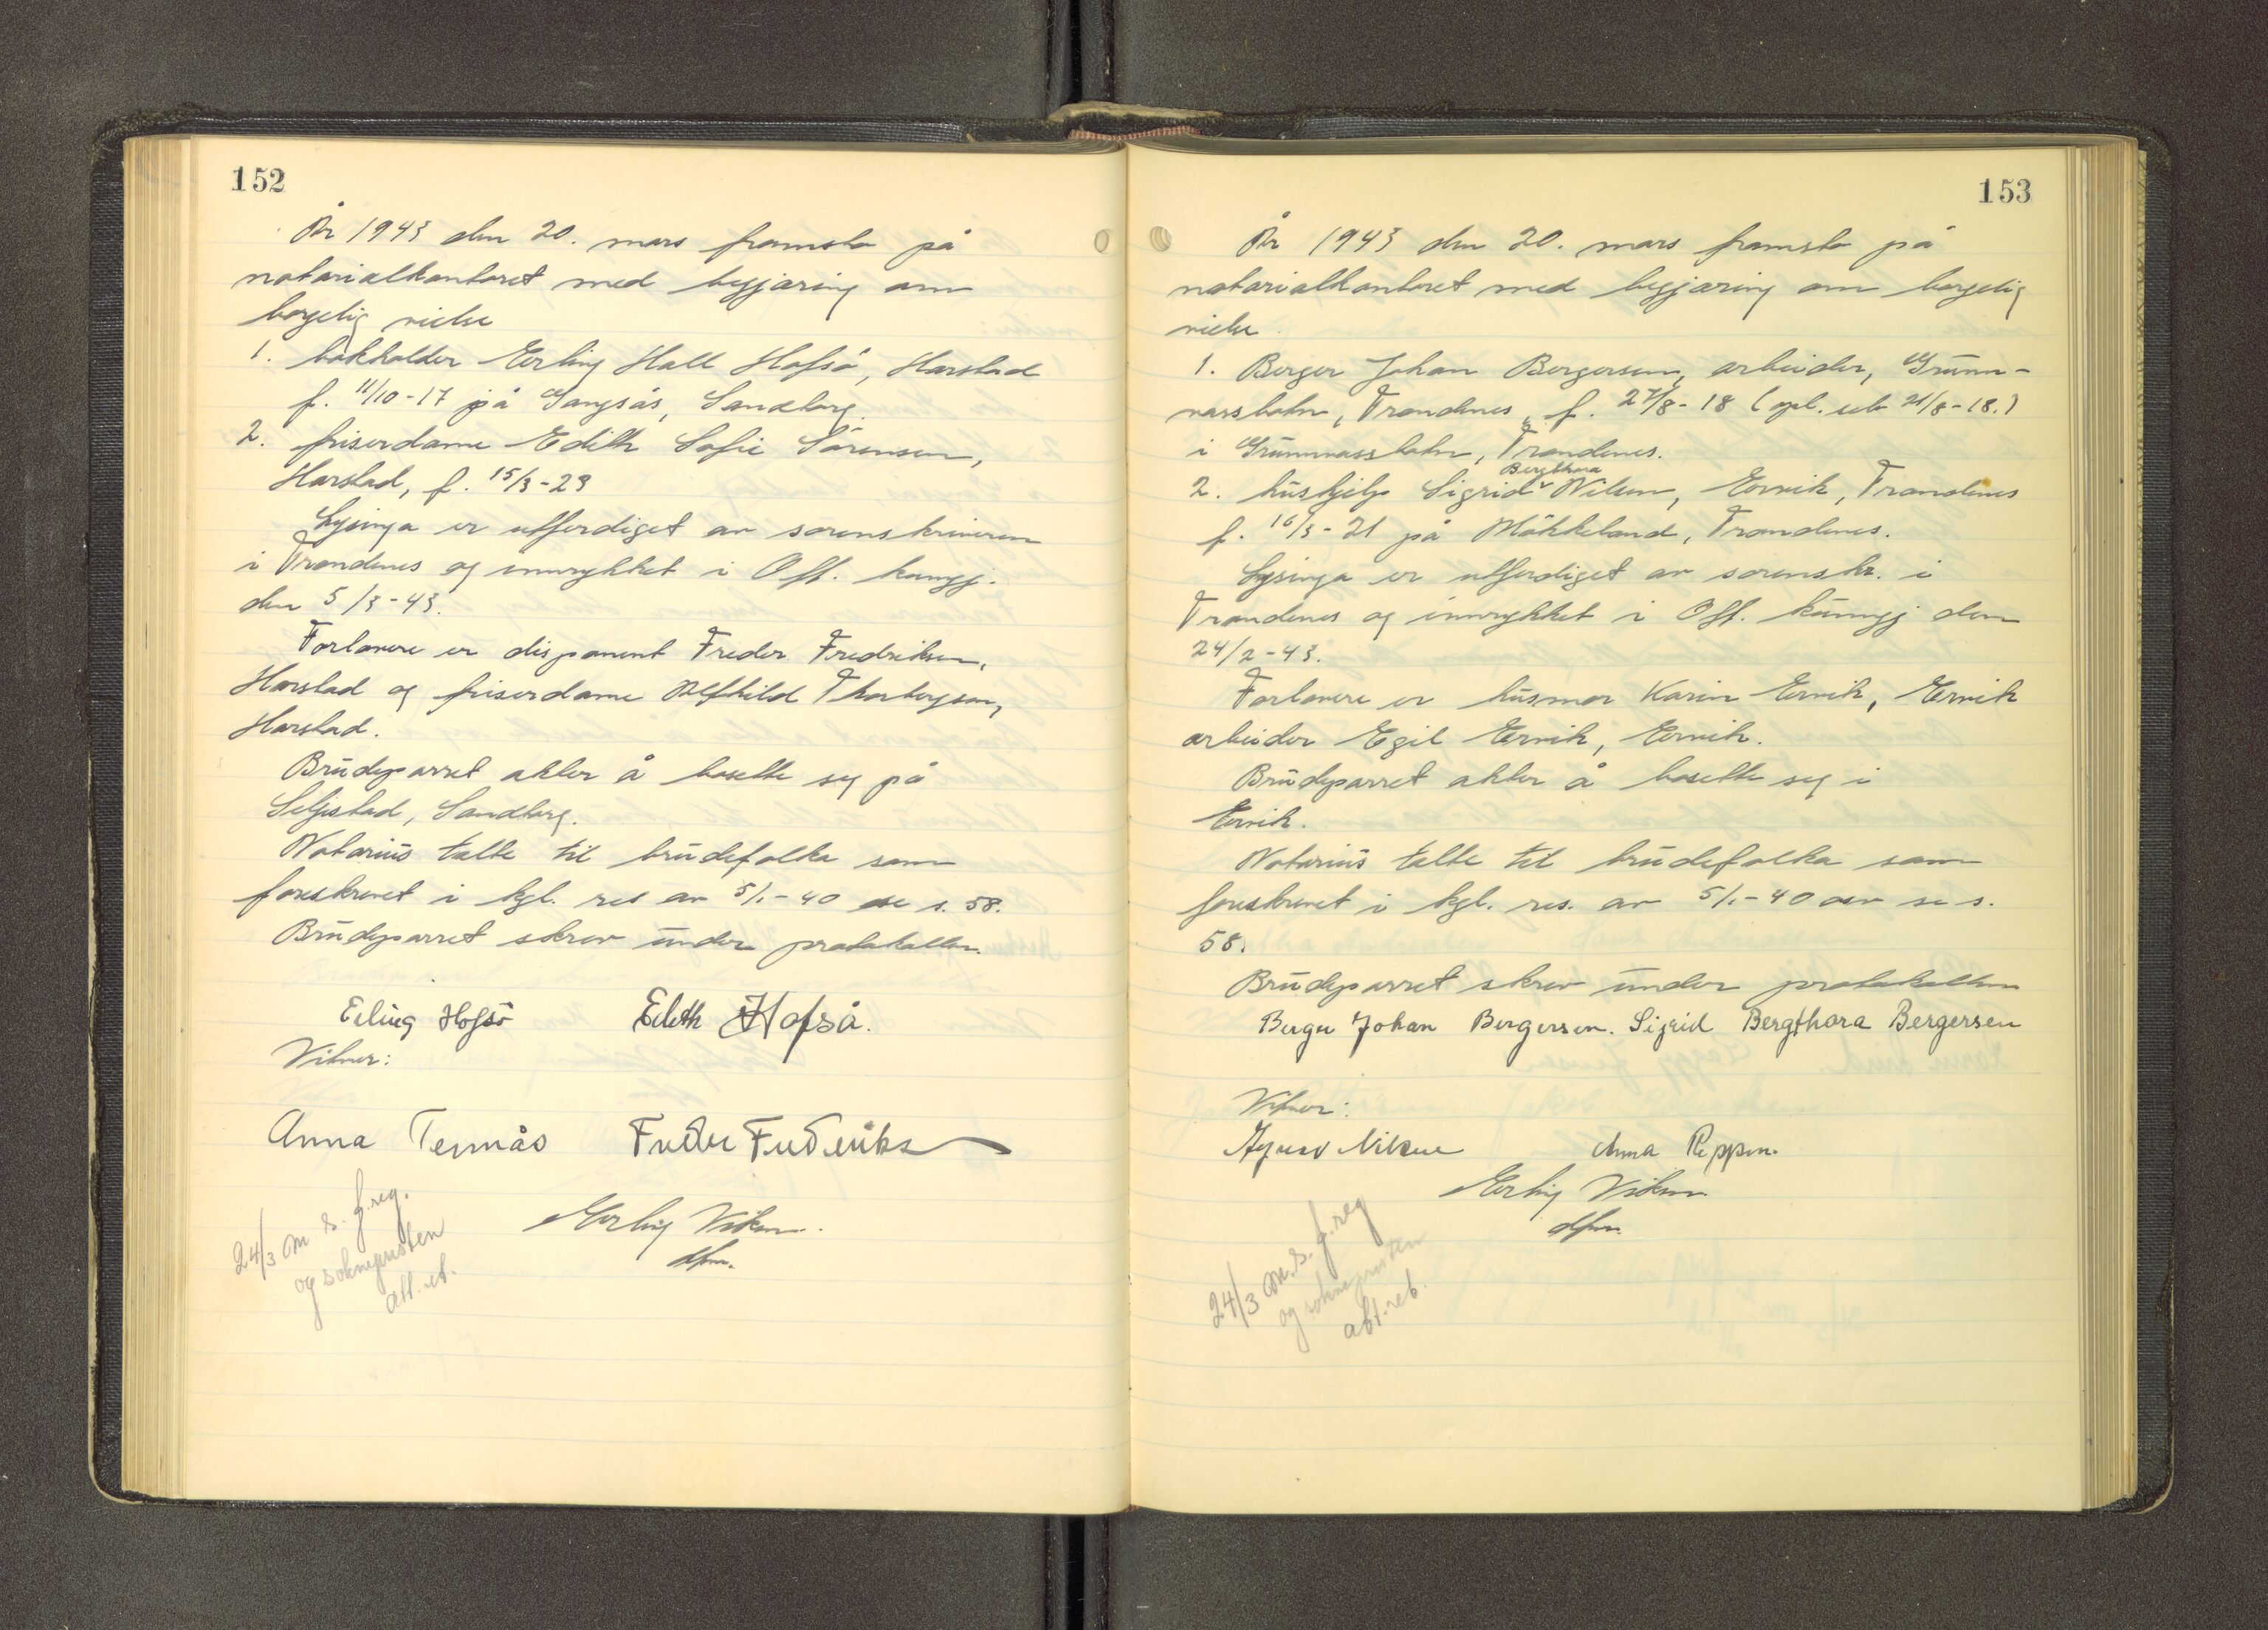 152
År 1943 den 20. mars framsto på
notarialkontoret med begjæring om
borgelig vielse
1. bokholder Erling Hall Hofsö, Harstad
f. 11/10-17 på Gangsås, Sandtorg.
2. friserdame Edith Sofie Sörensen,
Harstad, f. 15/3-23
Lysinga er utferdiget av sorenskriveren
i Trondenes og innrykket i Off. kungj.
den 5/3-43.
Forlovere er disponent Freder Fredriksen,
Harstad og friserdame Alfhild Thorbergsen,
Harstad.
Brudeparret akter å bosette seg på
Seljestad, Sandtorg.
Notarius talte til brudefolka som
foreskrevet i kgl. res av 5/1-40 se s. 58.
Brudeparret skrev under protokollen.
Erling Hofsö Edith Hofsö.
Vitner:
Anna Tennås Freder Frederiks
Erling Viken
dfm.
24/3 m s. f.reg.
og sokneprsten
att. ut.
153
År 1943 den 20. mars framsto på
notarialkontoret med begjæring om borgelig
vielse
1. Berger Johan Bergersen, arbeider, Grunn-
vassbotn, Trondenes, f. 27/8-18 (opl. selv 21/8-18.)
i Grunnvassbotn, Trondenes.
2. hushjelp Sigrid Bergthora Nilsen, Ervik, Trondenes
f. 16/3-21 på Mökkeland, Trondenes.
Lysinga er utferdiget av sorenskr. i
Trondenes og innrykket i Off. kungj den
24/2-43.
Forlovere er husmor Karin Ervik, Ervik
arbeider Egil Ervik, Ervik.
Brudeparret akter å bosette seg i
Ervik.
Notarius talte til brudefolka som
foreskrevet i kgl. res. av 5/1-40 osv se s.
58.
Brudeparret skrev under protokollen
Berger Johan Bergersen. Sigrid Bergthora Bergersen
Vitner:
Nilsen Anna Reppen.
Erling Viken
dfm.
24/3 m.s. f.reg
og sokneprsten
att. reb.